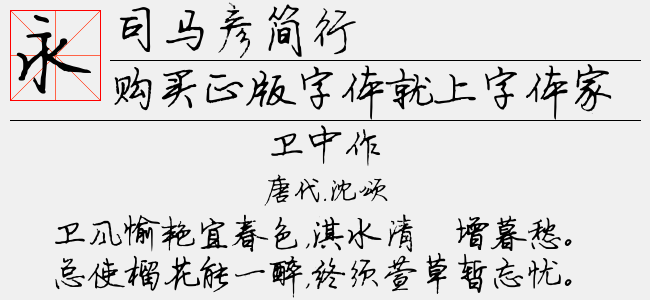 永
司马彦简行
购买正版字体就上字体家
卫中作
唐代.沈颂
卫风愉艳宜春色,淇水清　增暮愁。
总使榴花能一醉,终须萱草暂忘忧。